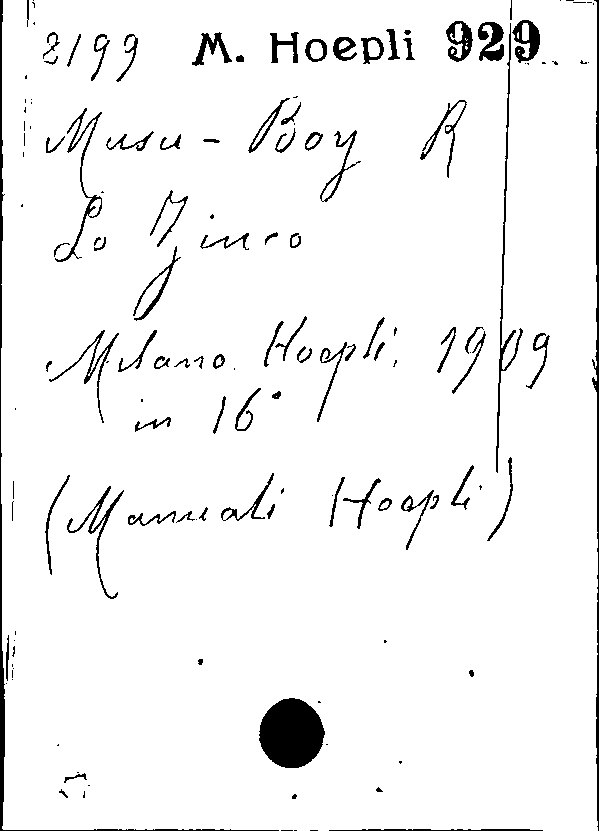 2199 M. Hoepli 929
Musu-Boy R
Lo Zinco
Milano. Hoepli. 1909
in 16°
(Manuali Hoepli)